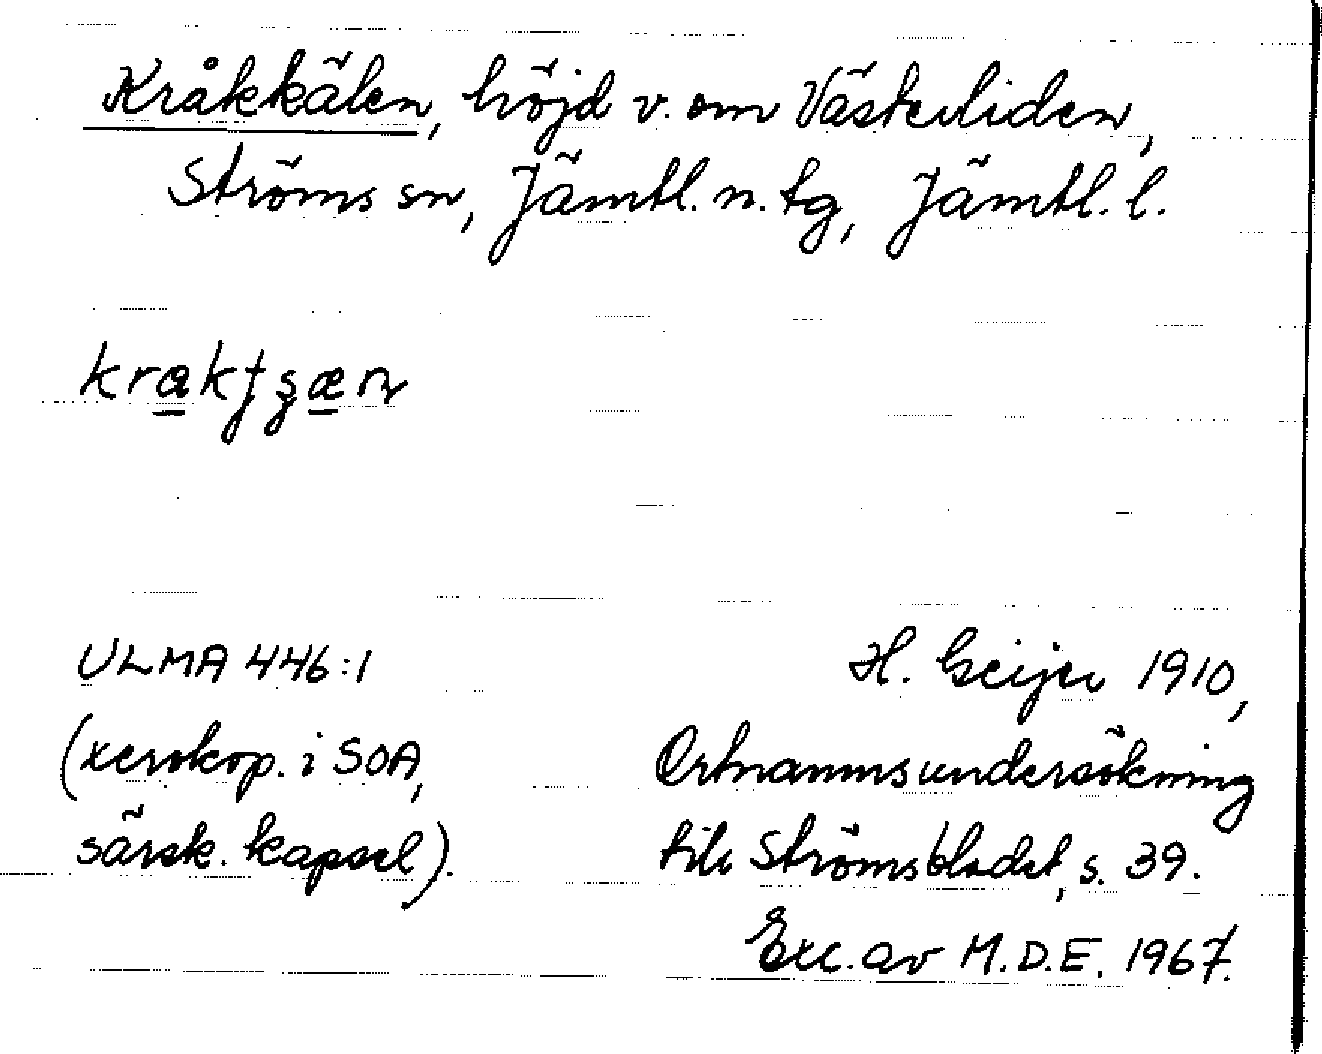 Kråkkälen, höjd v. om Västerliden,
Ströms sn, Jämtl. n. tg, Jämtl. l.
ULMA 446:1
(xerokop. i SOA,
särsk. kapsel).
H. Geijer 1910,
Ortnamnsundersökning
till Strömsbladet, s. 39.
Exc. av M.D.E. 1967.